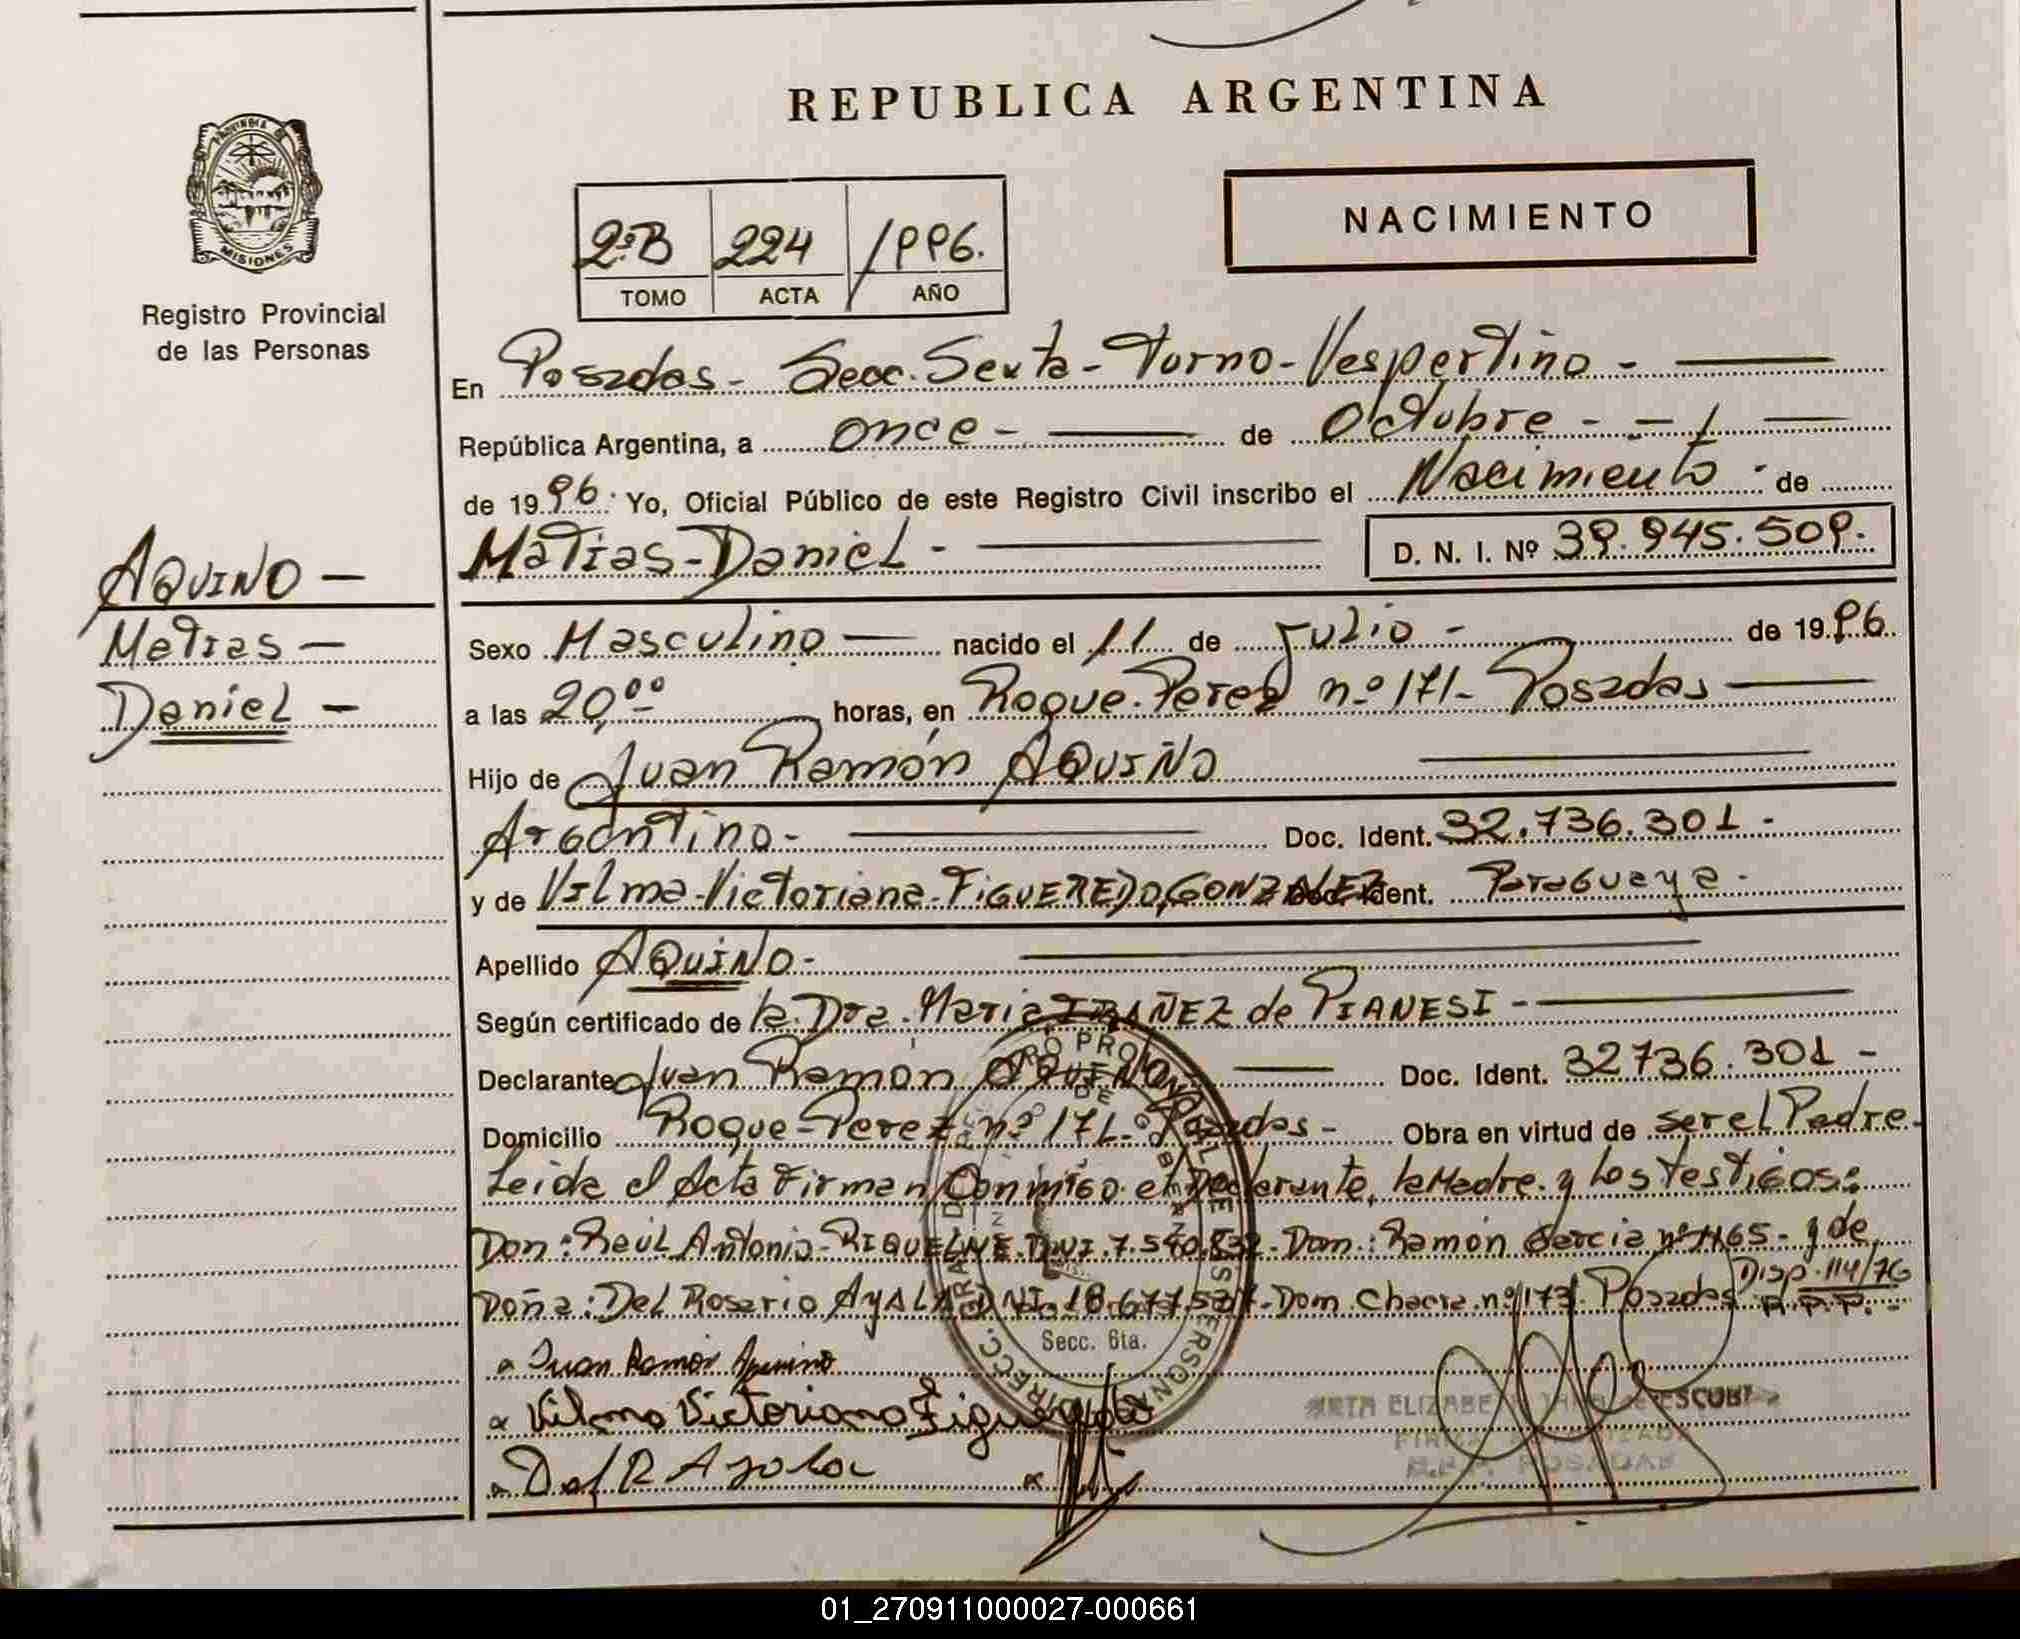 REPUBLICA ARGENTINA
PROVINCIA DE
MISIONES
Registro Provincial
de las Personas
2ºB 224 1996.
TOMO ACTA AÑO
NACIMIENTO
En Posadas - Secc. Sexta - Turno - Vespertino -
República Argentina, a once - de Octubre -
de 1996. Yo, Oficial Público de este Registro Civil inscribo el Nacimiento - de
Matias - Daniel - D. N. I. Nº 39.945.509.
AQUINO -
Matias -
Daniel -
Sexo Masculino nacido el 11 de Julio - de 1996.
a las 20,00 horas, en Roque Perez nº 171 - Posadas
Hijo de Juan Ramón AQUINO
Argentino - Doc. Ident. 32.736.301 -
y de Vilma Victoriana FIGUEREDO GONZALEZ Doc. Ident. Paraguaya -
Apellido AQUINO -
Según certificado de la Dra. Maria IBAÑEZ de PIANESI -
Declarante Juan Ramón AQUINO Doc. Ident. 32736.301 -
Domicilio Roque - Perez nº 171 - Posadas - Obra en virtud de ser el Padre.
Leida el Acta Firman Conmigo el Declarante, la Madre y Los Testigos:
Don: Raúl Antonio - RIQUELME DNI. 7.540.832 - Dom: Ramón Garcia nº 1165 - y de
Doña: Del Rosario AYALA DNI 18.677.537 - Dom. Chacra nº 173 Posadas Disp. 114/76
R.P.P. -
Secc. 6ta.
Juan Ramón Aquino
Vilma Victoriana Figueredo
Del R Ayala
ELIZABE ESCUB
POSADAS
01_270911000027-000661